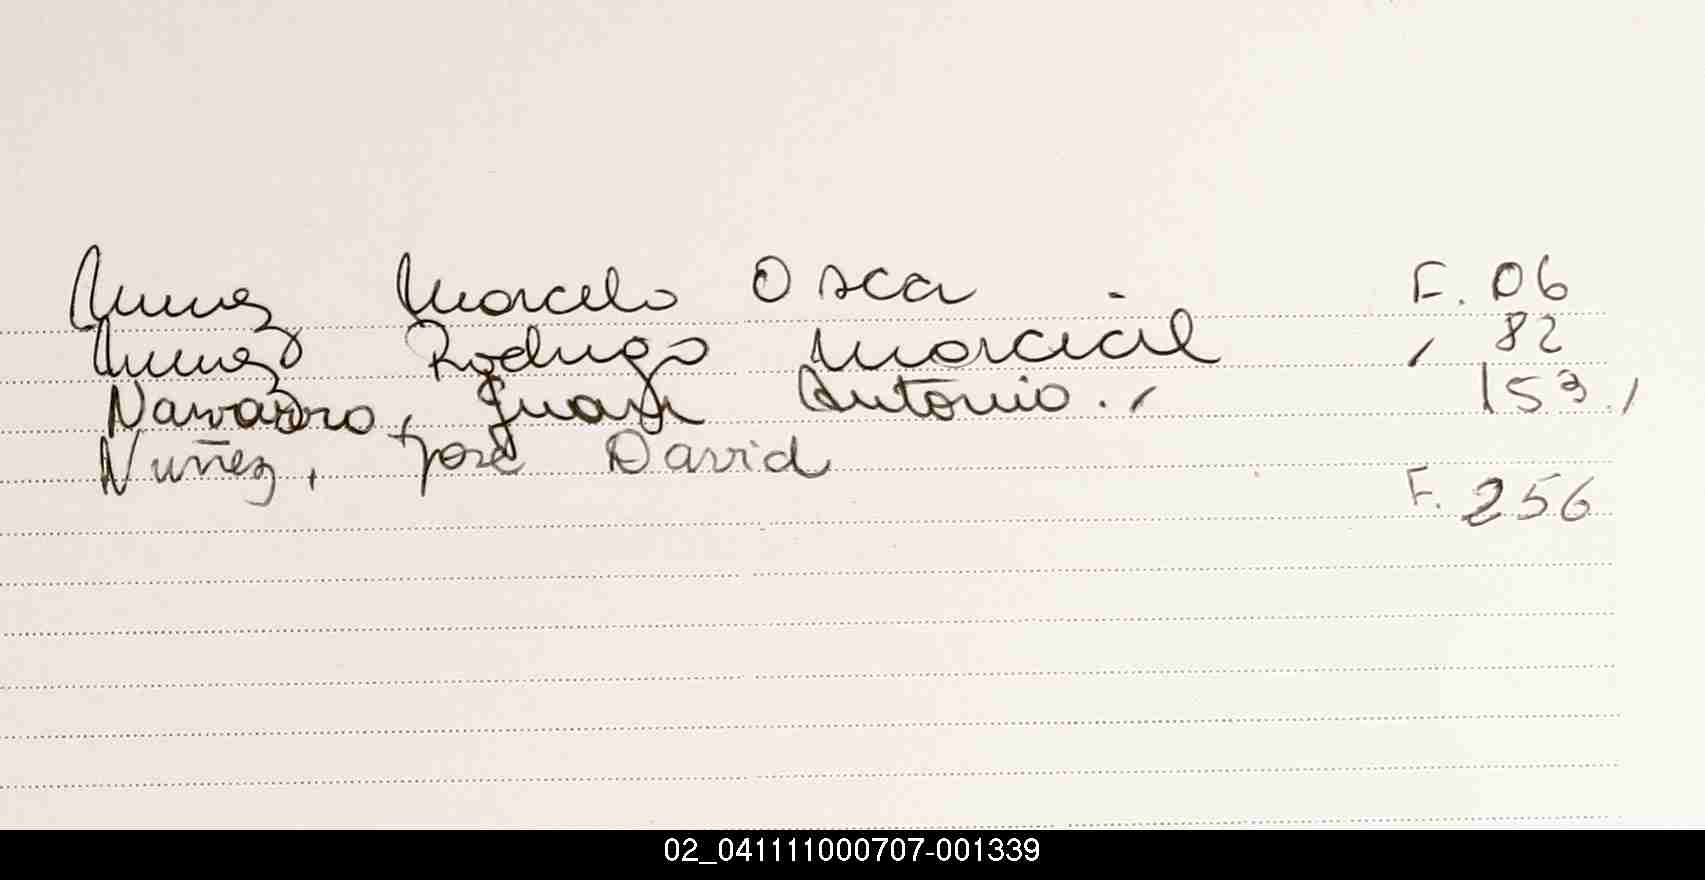 Nunez Marcelo Oscar F. 06
Nunez Rodrigo Marcial , 82
Navarro, Juan Antonio., 153,
Nuñez, José David
F. 256
02_041111000707-001339